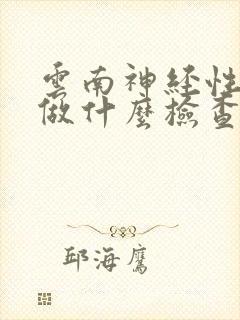 雲南神経性
做什麼檢查
邱海鷹